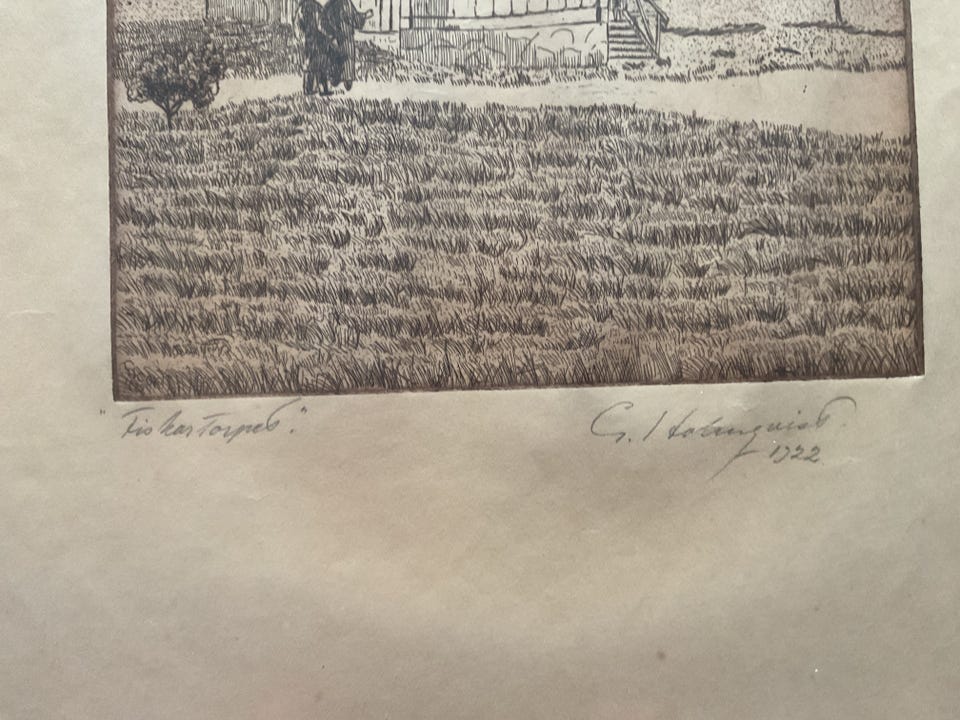 "Fiskartorpet".
G. Holmquist.
1922